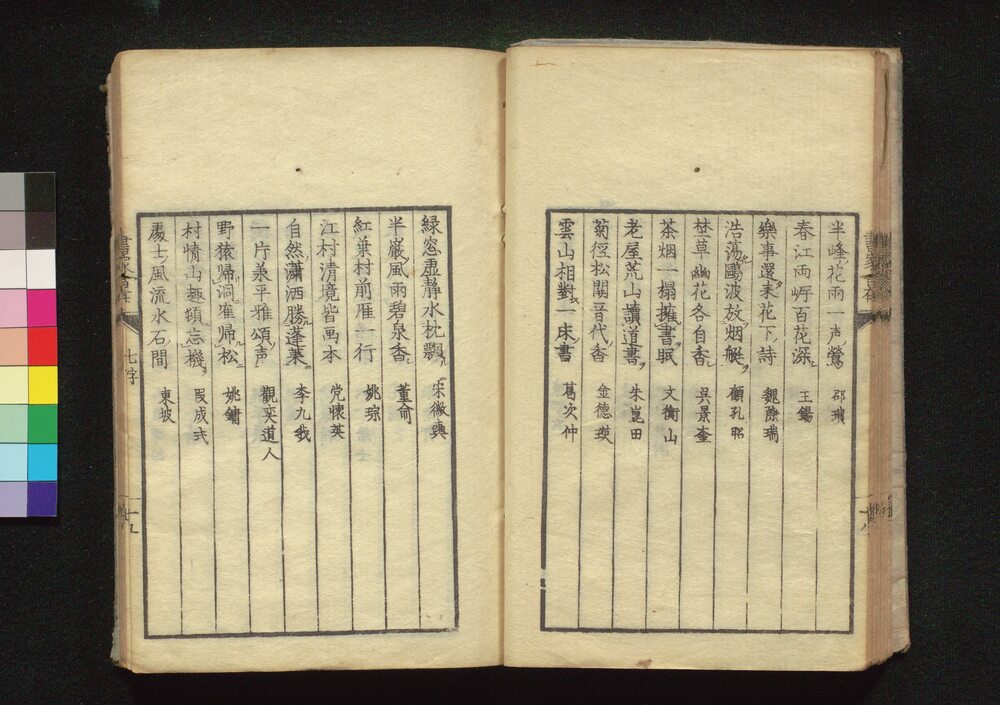 半峰花雨一声鶯 邵璸
春江両岸百花深 王錫
樂事還来花下詩 魏際瑞
浩蕩鷗波放烟艇 顧孔昭
埜草幽花各自香 呉景奎
茶烟一榻擁書眠 文衡山
老屋荒山讀道書 朱崑田
菊徑松関晋代香 金德瑛
雲山相對一床書 葛次仲
緑窓虚静水枕飄 宋徵輿
半巖風雨碧泉香 董俞
紅葉村前雁一行 姚琮
江村清境皆画本 党懐英
自然瀟洒勝蓬莱 李九我
一片承平雅頌声 觀奕道人
野猿帰洞隺帰松 姚鏞
村情山趣頓忘機 段成式
處士風流水石間 東坡
七字
十九